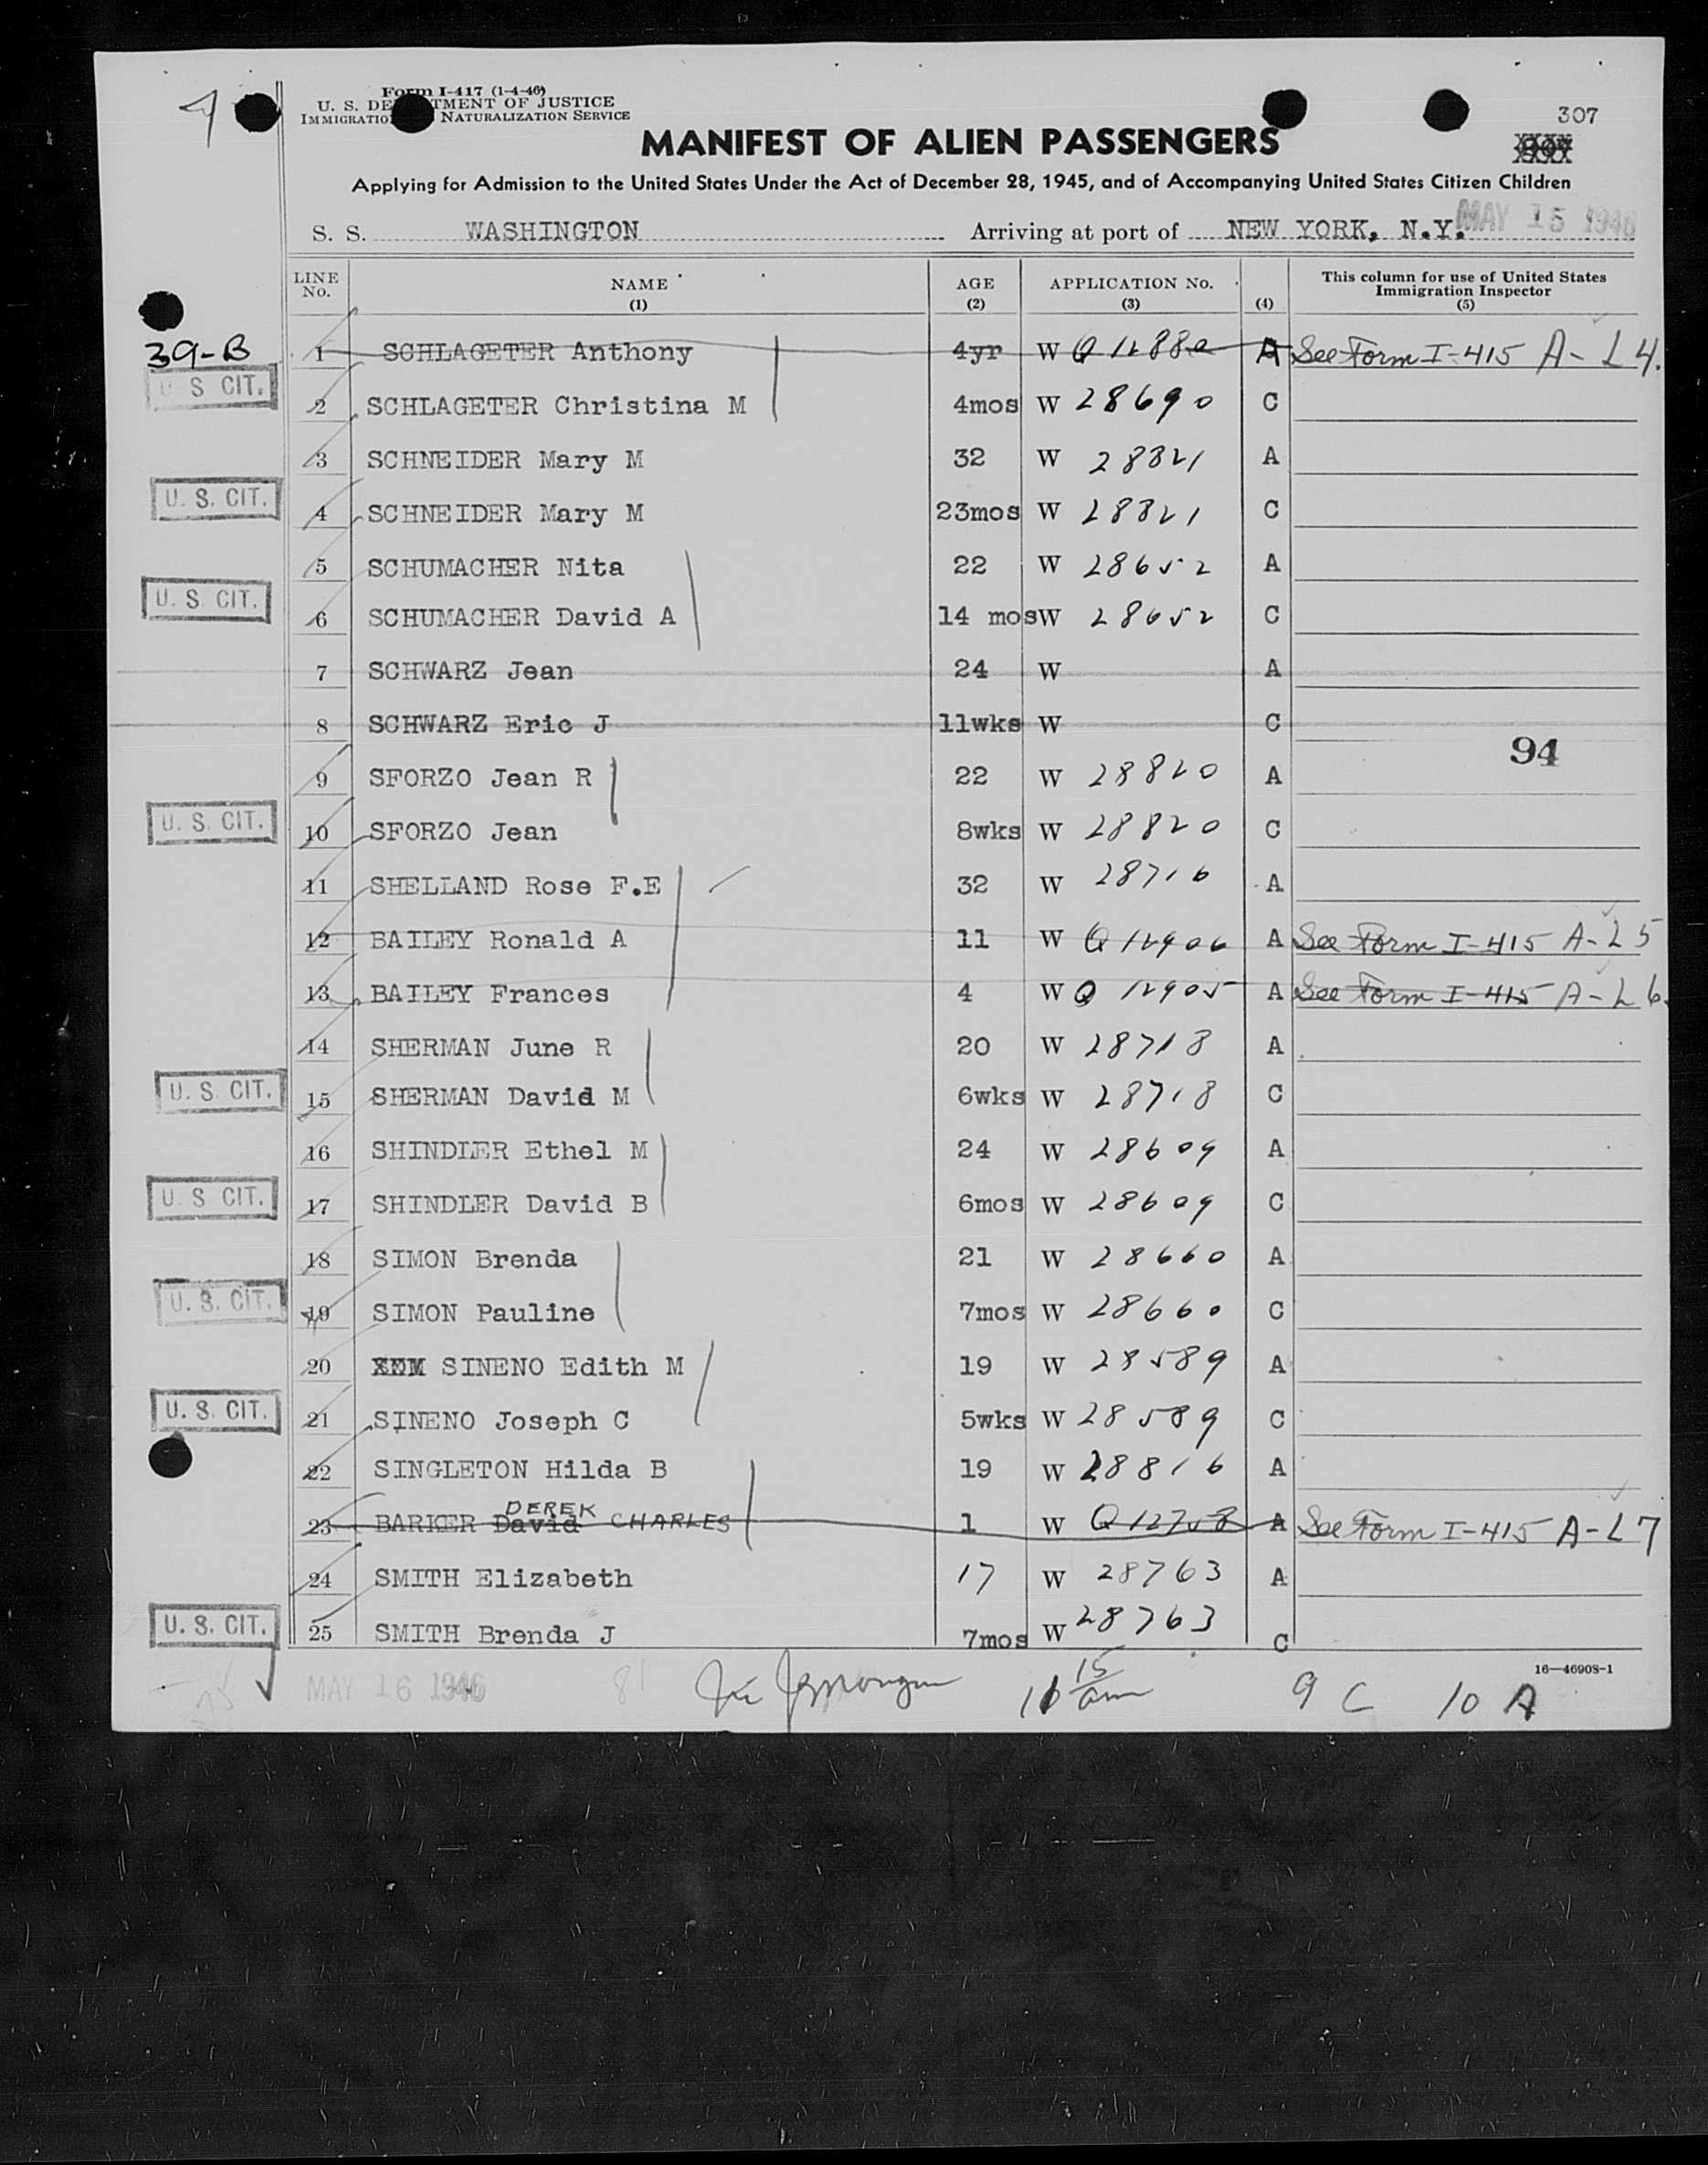 Form I-417 (1-4-46)
U. S. DE TMENT OF JUSTICE
IMMIGRATIO NATURALIZATION SERVICE
307
MANIFEST OF ALIEN PASSENGERS
Applying for Admission to the United States Under the Act of December 28, 1945, and of Accompanying United States Citizen Children
S. S. WASHINGTON Arriving at port of NEW YORK, N.Y. MAY 15 1946
LINE No. NAME (1) AGE (2) APPLICATION No. (3) (4) This column for use of United States Immigration Inspector (5)
39-B 1 SCHLAGETER Anthony 4yr W Q 12880 A See Form I-415 A-L 4.
U S CIT. 2 SCHLAGETER Christina M 4mos W 28690 C
3 SCHNEIDER Mary M 32 W 28821 A
U. S. CIT. 4 SCHNEIDER Mary M 23mos W 28821 C
5 SCHUMACHER Nita 22 W 28652 A
U. S. CIT. 6 SCHUMACHER David A 14 mos W 28652 C
7 SCHWARZ Jean 24 W A
8 SCHWARZ Eric J 11wks W C
94
9 SFORZO Jean R 22 W 28820 A
U. S. CIT. 10 SFORZO Jean 8wks W 28820 C
11 SHELLAND Rose F.E 32 W 28716 A
12 BAILEY Ronald A 11 W Q 12906 A See Form I-415 A-L 5
13 BAILEY Frances 4 W Q 12905 A See Form I-415 A-L 6.
14 SHERMAN June R 20 W 28718 A
U. S. CIT. 15 SHERMAN David M 6wks W 28718 C
16 SHINDLER Ethel M 24 W 28609 A
U. S CIT. 17 SHINDLER David B 6mos W 28609 C
18 SIMON Brenda 21 W 28660 A
U. S. CIT. 19 SIMON Pauline 7mos W 28660 C
20 SINENO Edith M 19 W 28589 A
U. S. CIT. 21 SINENO Joseph C 5wks W 28589 C
22 SINGLETON Hilda B 19 W 28816 A
23 BARKER David DEREK CHARLES 1 W Q12758 A See Form I-415 A-L 7
24 SMITH Elizabeth 17 W 28763 A
U. S. CIT. 25 SMITH Brenda J 7mos W 28763 C
16—46908-1
MAY 16 1946 81 11 15 am 9 C 10 A